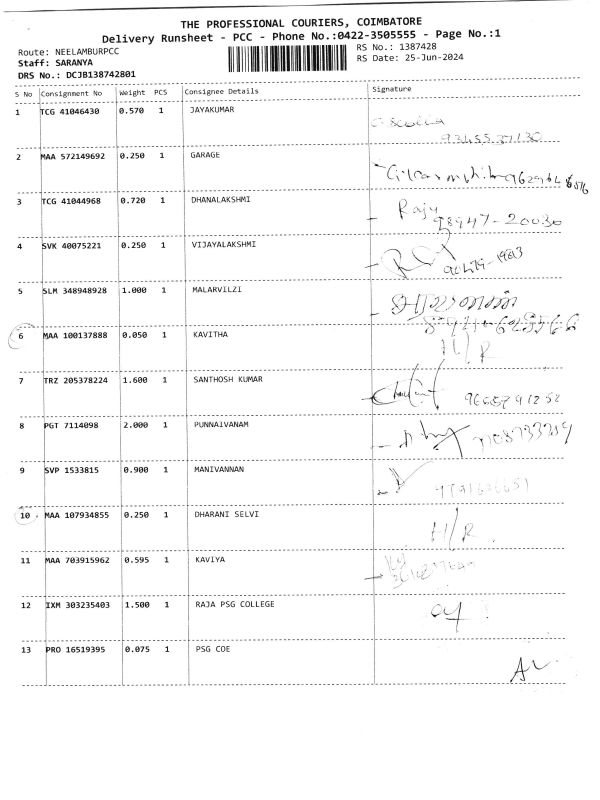 THE PROFESSIONAL COURIERS, COIMBATORE
Delivery Runsheet - PCC - Phone No.:0422-3505555 - Page No.:1
Route: NEELAMBURPCC
RS No.: 1387428
Staff: SARANYA
RS Date: 25-Jun-2024
DRS No.: DCJB138742801
S No Consignment No Weight PCS Consignee Details Signature
1 TCG 41046430 0.570 1 JAYAKUMAR
2 MAA 572149692 0.250 1 GARAGE
3 TCG 41044968 0.720 1 DHANALAKSHMI Raju
98947-20030
4 SVK 40075221 0.250 1 VIJAYALAKSHMI
5 SLM 348948928 1.000 1 MALARVILZI
6 MAA 100137888 0.050 1 KAVITHA H/R
7 TRZ 205378224 1.600 1 SANTHOSH KUMAR
8 PGT 7114098 2.000 1 PUNNAIVANAM
9 SVP 1533815 0.900 1 MANIVANNAN
10 MAA 107934855 0.250 1 DHARANI SELVI H/R
11 MAA 703915962 0.595 1 KAVIYA
12 IXM 303235403 1.500 1 RAJA PSG COLLEGE
13 PRO 16519395 0.075 1 PSG COE